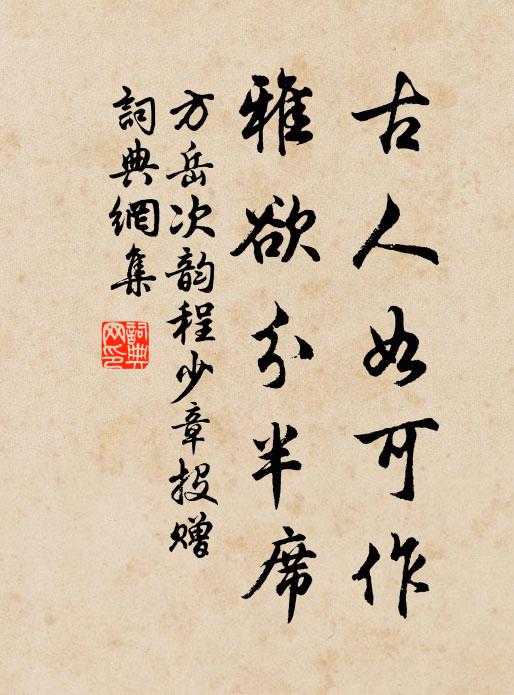 古人如可作
雅欲分半席
方岳次韵程少章投赠
詞典網集
詞典
网印